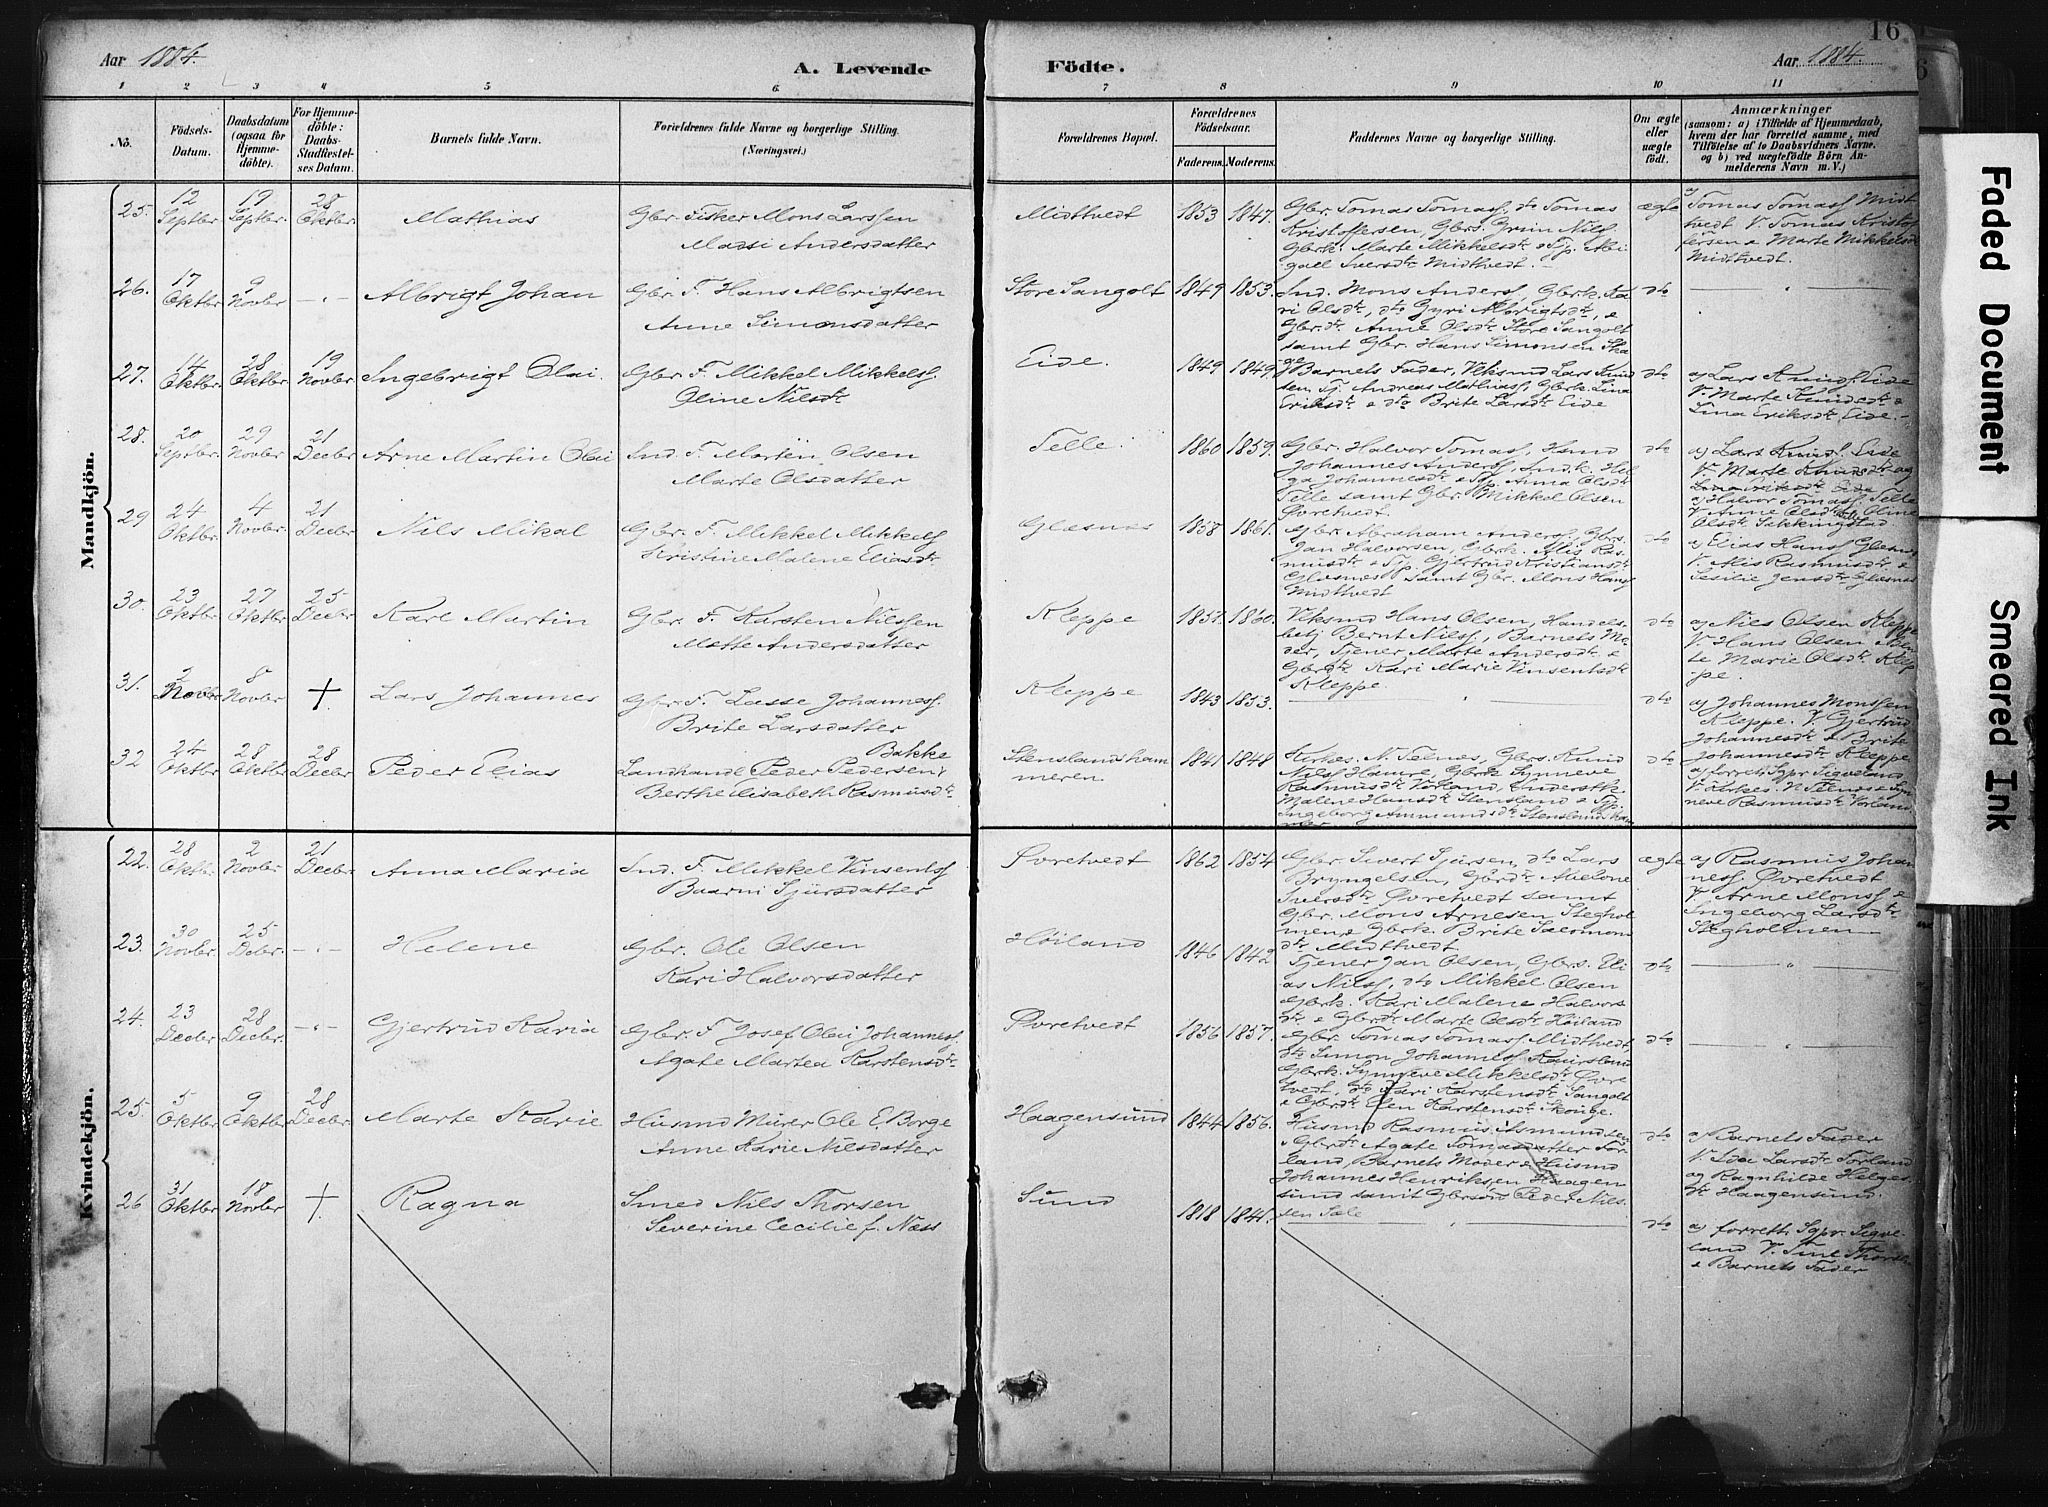 16
Aar 1884.
A. Levende
Födte.
Aar 1884.
1 2 3 4 5 6 7 8 9 10 11
No.
Födsels-
Datum.
Daabsdatum
(ogsaa for
Hjemme-
döbte).
For Hjemme-
döbte:
Daabs-
Stadfæstel-
ses Datum.
Barnets fulde Navn.
Forældrenes fulde Navne og borgerlige Stilling.
(Næringsvei.)
Forældrenes Bopæl.
Forældrenes
Födselsaar.
Faderens. Moderens.
Faddernes Navne og borgerlige Stilling.
Om ægte
eller
uægte
födt.
Anmærkninger
(saasom: a) i Tilfælde af Hjemmedaab,
hvem der har forrettet samme, med
Tilföielse af to Daabsvidners Navne.
og b) ved uægtefödte Börn An-
melderens Navn m. V.)
Mandkjön.
25. 12 Septbr 19 Septbr 28 Oktbr. Mathias
Gbr. Fisker Mons Larssen
Massi Andersdatter
Midtvedt 1853 1847.
Gbr. Tomas Tomass., dto Tomas
Kristoffersen, Gbrs. Grim Nilss.
Gbrk. Marte Mikkelsdtr & Pig. Abi-
gael Iversdtr Midtvedt. —
ægte
a) Tomas Tomass. Midt
tvedt V. Tomas Kristof
fersen & Marte Mikkelsdtr
Midtvedt.
26. 17 Oktbr 9 Novbr -"- Albrigt Johan
Gbr. F. Hans Albrigtsen
Anne Simonsdatter
Store Sangolt 1849 1853.
Ind. Mons Anderss., Gbrk. Ka-
ri Olsdtr, dto Gyri Albrigtsdtr, &
Gbr.dtr Anne Olsdtr Store Sangolt
samt Gbr. Hans Simonsen Ska
dto
27. 14 Oktbr 28 Oktbr 19 Novbr Ingebrigt Olai.
Gbr. F. Mikkel Mikkels.
Oline Nilsdtr
Eide. 1849 1849.
Barnets Fader, Veksmd Lars Knud
sen, Tj. Andreas Mathiass., Gbrk. Lina
Eriksdtr & dto Brite Larsdtr Eide
dto
a) Lars Knuds. Eide
V. Marte Knudsdtr &
Lina Eriksdtr Eide. —
28. 20 Septbr. 29 Novbr 21 Decbr Arne Martin Olai
Ind. F. Marten Olsen
Marte Olsdatter
Telle. 1860 1859.
Gbr. Halvor Tomass., Husmd
Johannes Anderss., Ind.k. Hel-
ga Johannesdtr & Pig. Anna Olsdtr
Telle samt Gbr. Mikkel Olsen
Øvretvedt.
dto
a) Lars Knuds. Eide
V. Marte Knudsdtr og
Lina Eriksdtr Eide
a) Halvor Tomass. Telle
V. Anne Olsdtr & Oline
Olsdtr Sekkingstad
29 24 Oktbr. 4 Novbr. 21 Decbr Nils Mikal
Gbr. F. Mikkel Mikkels.
Kristine Malene Eliasdtr
Glæsnæs 1858 1861.
Gbr. Abraham Anders., Gbrs.
Jan Halvorsen, Gbrk. Alis Ras-
musdtr & Pig. Gjertrud Kristiansdtr
Glæsnes samt Gbr. Mons Hanss.
Midtvedt
dto
a) Elias Hanss. Glæsnes
V. Alis Rasmusdtr &
Cecilie Jensdtr Glæsnæs
30. 23 Oktbr 27 Oktbr 25 Decbr Karl Martin
Gbr. F. Karsten Nilssen
Mette Andersdatter
Kleppe 1851. 1860.
Veksmd Hans Olsen, Handels-
betj Bernt Nilss., Barnets Mo-
der, Tjener Marte Andersdtr &
Gbrdtr Kari Marie Vinsentsdtr
Kleppe.
dto
a) Niels Olsen Kleppe
V. Hans Olsen & Ben
te Marie Olsdtr Klep
pe.
31. 2 Novbr 8 Novbr + Lars Johannes
Gbr. F. Lasse Johanness.
Brite Larsdatter
Kleppe 1843 1853.
dto
a) Johannes Monssen
Kleppe. V. Gjertrud
Johannesdtr & Brite
Johannesdtr Kleppe
32 24 Oktbr 28 Oktbr 28 Decbr Peder Elias
Landhandl Peder Pedersen Bakke
Berthe Elisabeth Rasmusdtr
Stenslandsham
meren. 1841 1848
Kirkes. N. Teenes, Gbrs. Knud
Nilss Hamre, Gbrk. Synneve
Rasmusdtr Vorland, Inderstk.
Malene Hansdtr Stensland & Pig.
Ingeborg Ammundsdtr Stenslandsham
mer
dto
a) forrett. Sgpr. Sigveland
V. Kirkes. N. Teenes & Syn
neve Rasmusdtr Vorland
Kvindekjön.
22. 28 Oktbr. 2 Novbr 21 Decbr Anna Maria
Ind. F. Mikkel Vinsents.
Baarni Sjursdatter
Øvretvedt 1862 1854
Gbr. Sivert Sjursen, dto Lars
Bryngelsen, Gbrdtr Abelone
Iversdtr Øvretvedt samt
Gbr. Mons Arnesen Steghol-
men & Gbrk. Brite Salomons
dtr Midtvedt
ægte
a) Rasmus Johan
ness. Øvretvedt
V. Arne Monss. &
Ingeborg Larsdtr
Stegholmen —
23. 30 Novbr. 25 Decbr. -"- Helene
Gbr. Ole Olsen
Kari Halvorsdatter
Høiland 1846 1842
Tjener Jan Olsen, Gbrs. Eli
as Nilss., dto Mikkel Olsen
Gbrk. Kari Malene Halvors
dtr & Gbrdtr Marte Olsdtr Høiland
dto
24. 23 Decbr 28 Decbr. -"- Gjertrud Karia
Gbr. F. Josef Olai Johanness.
Agate Martea Karstensdtr
Øvretvedt 1856 1857.
Gbr. Tomas Tomass. Midtvedt,
dto Simon Johanness. Kausland
Gbrk. Synneve Mikkelsdtr Øvre
tvedt, dto Kari Karstensdtr Sangolt
& Gbrdtr Elen Karstensdtr Skouge.
dto
25. 5 Oktbr 9 Oktbr 28 Decbr Marte Karie
Husmd Murer Ole E. Borge
Anne Karie Nilsdatter
Haagensund 1844 1856.
Husmd Rasmus Asmundsen
& Gbrdtr Agate Tomasdatter For-
land, Barnets Moder & Husmd
Johannes Henriksen Haagen
sund samt Gbrsøn Peder Nils-
sen Sæle
dto
a) Barnets Fader
V. Ida Larsdtr Forland
og Ragnhilde Helges
dtr Haagensund.
26 31 Oktbr 18 Novbr † Ragna
Smed Nils Thorsen
Severine Cecilie f. Næss
Sund 1818 1841.
dto
a) forrett. Sgpr. Sigve-
land V. Sme Thorsen
& Barnets Fader
Faded Document
Smeared Ink